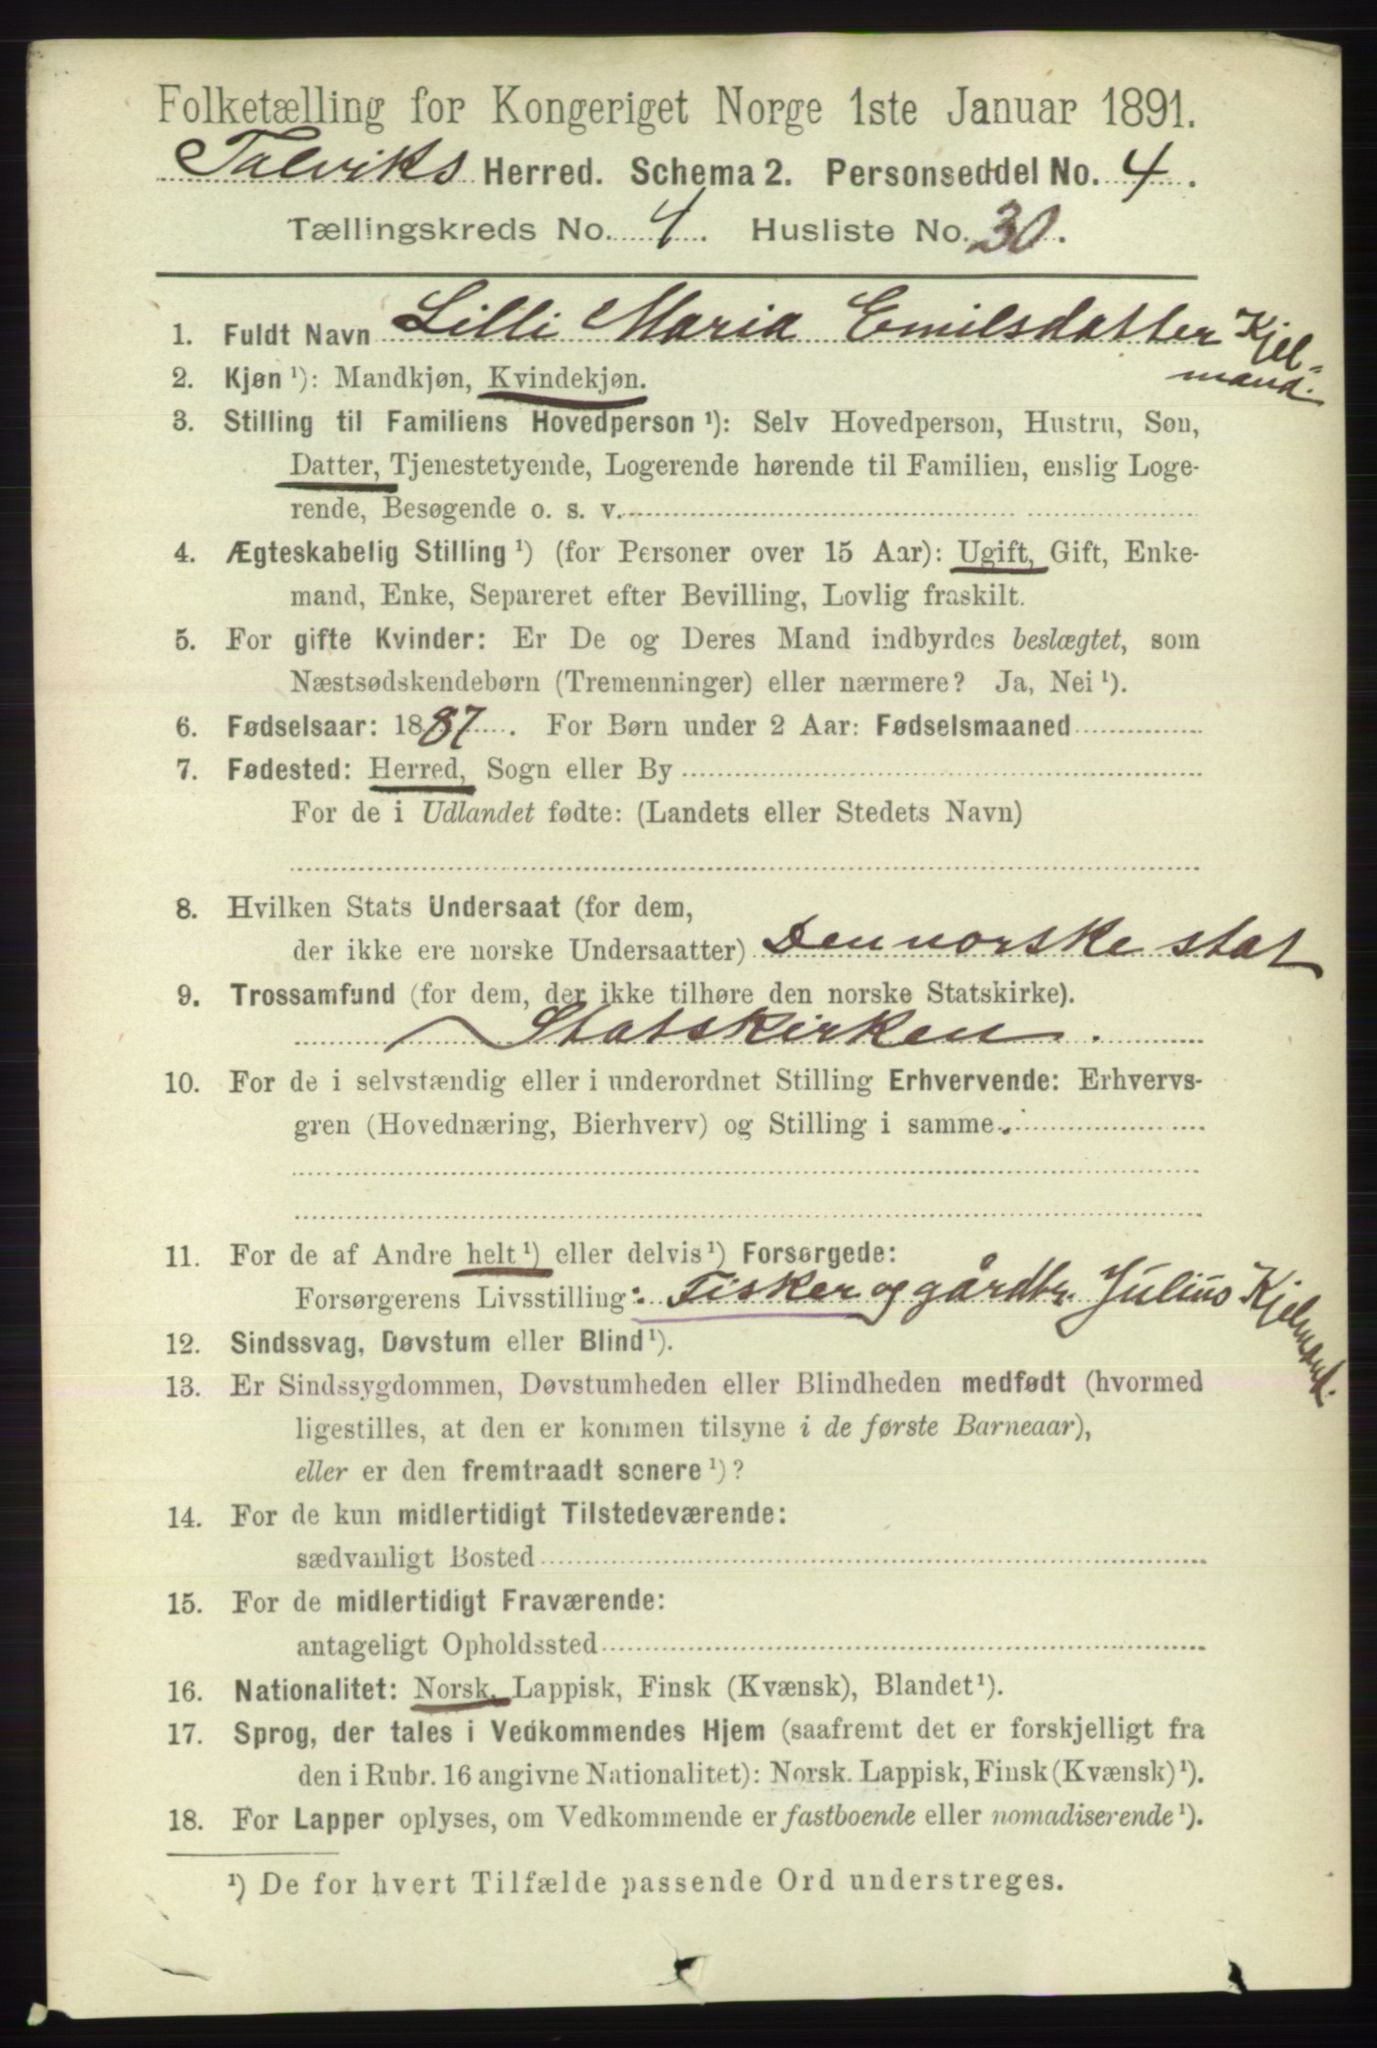 Folketælling for Kongeriget Norge 1ste Januar 1891.
Talviks Herred. Schema 2. Personseddel No. 4.
Tællingskreds No. 4. Husliste No. 30.
1. Fuldt Navn Lilli Maria Emilsdatter Kjel=
mand.
2. Kjøn ¹): Mandkjøn, Kvindekjøn.
3. Stilling til Familiens Hovedperson ¹): Selv Hovedperson, Hustru, Søn,
Datter, Tjenestetyende, Logerende hørende til Familien, enslig Loge-
rende, Besøgende o. s. v.
4. Ægteskabelig Stilling ¹) (for Personer over 15 Aar): Ugift, Gift, Enke-
mand, Enke, Separeret efter Bevilling, Lovlig fraskilt.
5. For gifte Kvinder: Er De og Deres Mand indbyrdes beslægtet, som
Næstsødskendebørn (Tremenninger) eller nærmere? Ja, Nei ¹).
6. Fødselsaar: 1887. For Børn under 2 Aar: Fødselsmaaned
7. Fødested: Herred, Sogn eller By
For de i Udlandet fødte: (Landets eller Stedets Navn)
8. Hvilken Stats Undersaat (for dem,
der ikke ere norske Undersaatter) Den norske stat
9. Trossamfund (for dem, der ikke tilhøre den norske Statskirke).
Statskirken.
10. For de i selvstændig eller i underordnet Stilling Erhvervende: Erhvervs-
gren (Hovednæring, Bierhverv) og Stilling i samme.
11. For de af Andre helt ¹) eller delvis ¹) Forsørgede:
Forsørgerens Livsstilling: Fisker og gårdbr. Julius Kjelmand.
12. Sindssvag, Døvstum eller Blind ¹).
13. Er Sindssygdommen, Døvstumheden eller Blindheden medfødt (hvormed
ligestilles, at den er kommen tilsyne i de første Barneaar),
eller er den fremtraadt senere ¹)?
14. For de kun midlertidigt Tilstedeværende:
sædvanligt Bosted
15. For de midlertidigt Fraværende:
antageligt Opholdssted
16. Nationalitet: Norsk, Lappisk, Finsk (Kvænsk), Blandet ¹).
17. Sprog, der tales i Vedkommendes Hjem (saafremt det er forskjelligt fra
den i Rubr. 16 angivne Nationalitet): Norsk. Lappisk, Finsk (Kvænsk) ¹).
18. For Lapper oplyses, om Vedkommende er fastboende eller nomadiserende ¹).
¹) De for hvert Tilfælde passende Ord understreges.